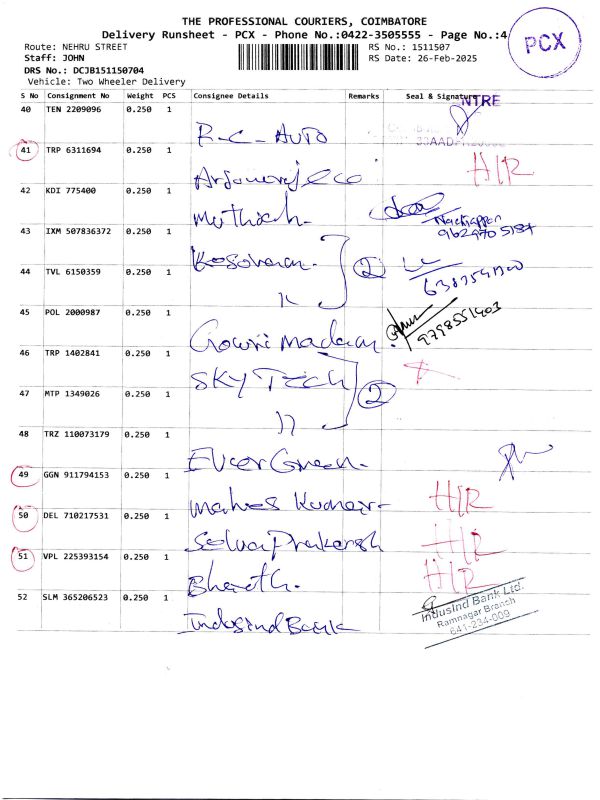 THE PROFESSIONAL COURIERS, COIMBATORE
Delivery Runsheet - PCX - Phone No.:0422-3505555 - Page No.:4
PCX
Route: NEHRU STREET
RS No.: 1511507
Staff: JOHN
RS Date: 26-Feb-2025
DRS No.: DCJB151150704
Vehicle: Two Wheeler Delivery
S No Consignment No Weight PCS Consignee Details Remarks Seal & Signature
NTRE
40 TEN 2209096 0.250 1 R-C-AUTO
41 TRP 6311694 0.250 1 H/R
42 KDI 775400 0.250 1 Muthiah.
Nachiappan
9629705187
43 IXM 507836372 0.250 1 2
44 TVL 6150359 0.250 1 11
45 POL 2000987 0.250 1 Gowri madam.
9798551403
46 TRP 1402841 0.250 1 SKY Tech 2
47 MTP 1349026 0.250 1 11
48 TRZ 110073179 0.250 1 Ever Green.
49 GGN 911794153 0.250 1 Mahes Kumar. H/R
50 DEL 710217531 0.250 1 Selva Prakash H/R
51 VPL 225393154 0.250 1 Bharath. H/R
52 SLM 365206523 0.250 1 Indusind Bank
IndusInd Bank Ltd.
Ramnagar Branch
641-234-009